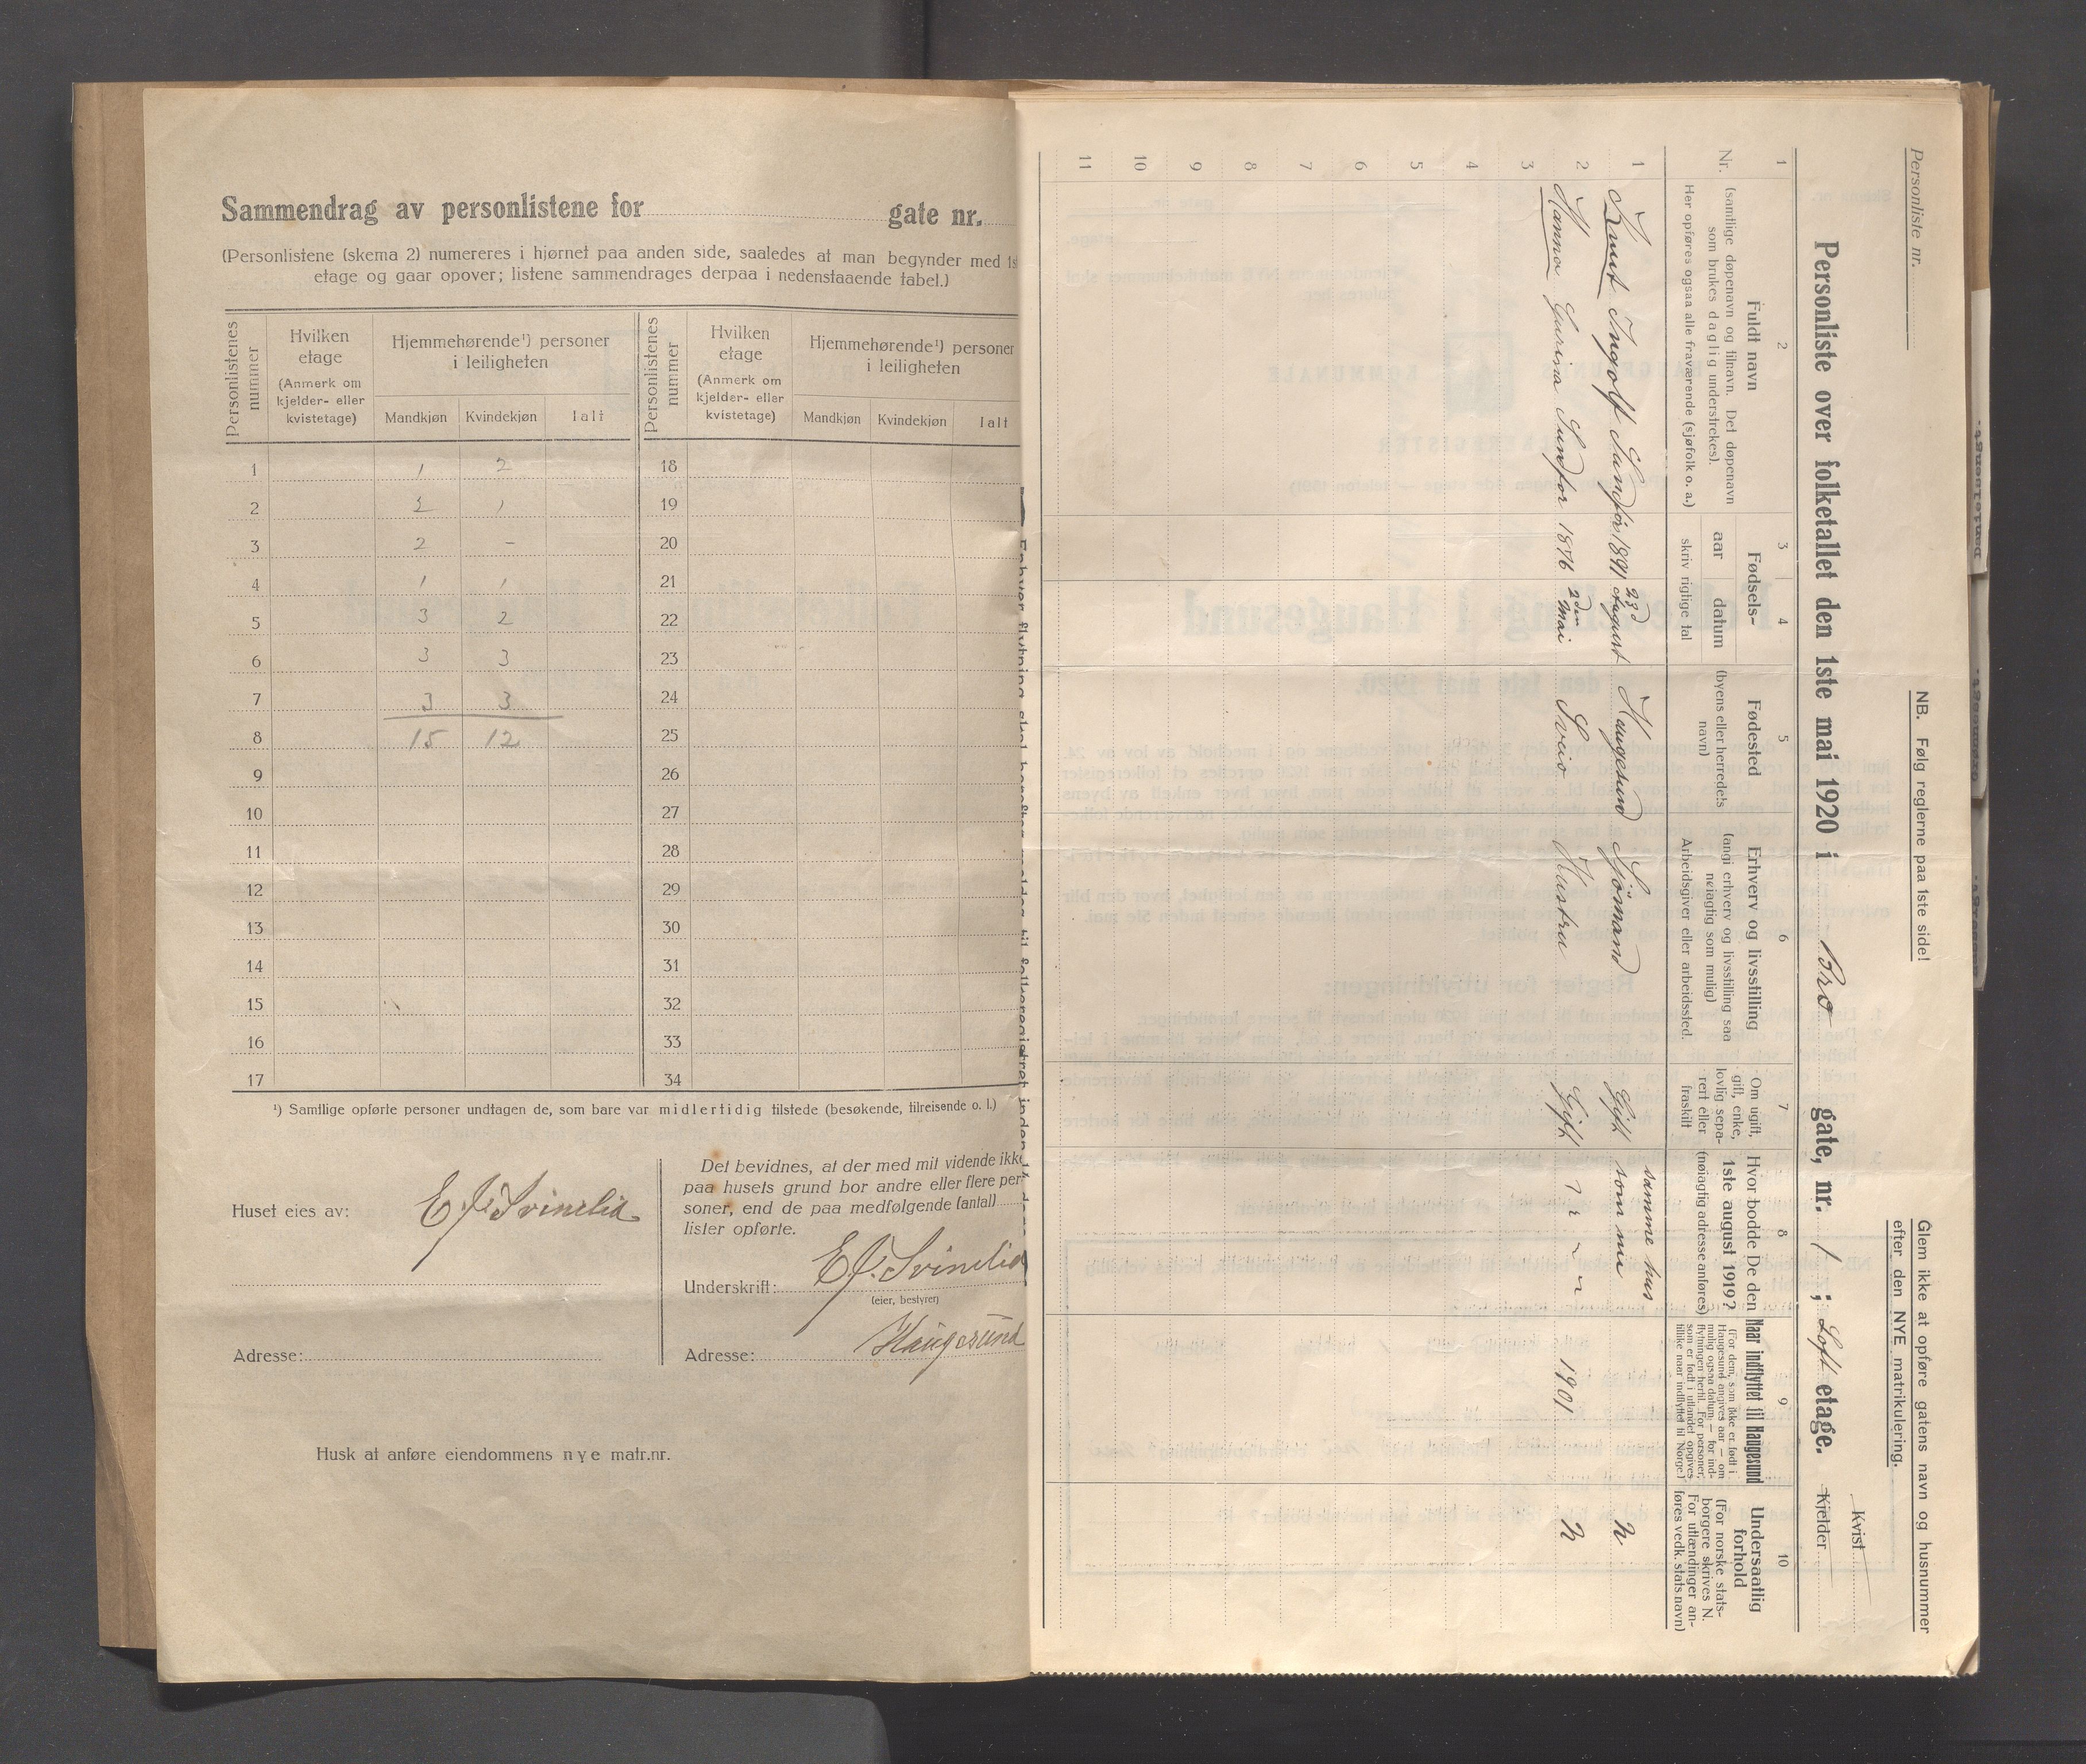 Sammendrag av personlistene for gate nr.
(Personlistene (skema 2) numereres i hjørnet paa anden side, saaledes at man begynder med 1s
etage og gaar opover; listene sammendrages derpaa i nedenstaaende tabel.)
Personlistenes nummer
Hvilken etage (Anmerk om kjelder- eller kvistetage)
Hjemmehørende¹) personer i leiligheten
Mandkjøn Kvindekjøn Ialt
Personlistenes nummer
Hvilken etage (Anmerk om kjelder- eller kvistetage)
Hjemmehørende¹) personer i leiligheten
Mandkjøn Kvindekjøn Ialt
1 1 2 18
2 2 1 19
3 2 - 20
4 1 1 21
5 3 2 22
6 3 3 23
7 3 3 24
8 15 12 25
9 26
10 27
11 28
12 29
13 30
14 31
15 32
16 33
17 34
¹) Samtlige opførte personer undtagen de, som bare var midlertidig tilstede (besøkende, tilreisende o. l.)
Huset eies av: E J Svinelid
Adresse:
Det bevidnes, at der med mit vidende ikke
paa husets grund bor andre eller flere per
soner, end de paa medfølgende (antal)
lister opførte.
Underskrift: E J. Svinelid
(eier, bestyrer)
Adresse: Haugesund
Husk at anføre eiendommens nye matr.nr.
Personliste nr.
NB. Følg reglerne paa 1ste side!
Glem ikke at opføre gatens navn og husnummer
efter den NYE matrikulering.
Kvist
Personliste over folketallet den 1ste mai 1920 i Bro gate, nr. 1; Loft etage. Kjelder
1 2 3 4 5 6 7 8 9 10
Nr.
Fuldt navn
(samtlige døpenavn og tilnavn. Det døpenavn
som brukes daglig understrekes).
Her opføres ogsaa alle fraværende (sjøfolk o. a.)
Fødsels-
aar datum
skriv rigtige tal
Fødested
(byens eller herredets
navn)
Erhverv og livsstilling
(angi erhverv og livsstilling saa
nøiagtig som mulig)
Arbeidsgiver eller arbeidssted.
Om ugift,
gift, enke,
lovlig sepa-
rert eller
fraskilt
Hvor bodde De den
1ste august 1919?
(nøiagtig adresse anføres)
Naar indflyttet til Haugesund
(For dem, som ikke er født i
Haugesund angives aar — om
mulig ogsaa datum — for ind-
flytningen hertil. For personer,
som er født i utlandet opgives
tillike naar indflyttet til Norge.)
Undersaatlig
forhold
(For norske stats-
borgere skrives N.
For utlændinger an-
føres vedk. stats navn)
samme hus
1 Knut Ingolf Sundfør 1891 23d August Haugesund Sjömand Gift som nu N
2 Hanna Gurina Sundfør 1876 2den Mai Sveio Hustru Gift 1901 N
3
4
5
6
7
8
9
10
11